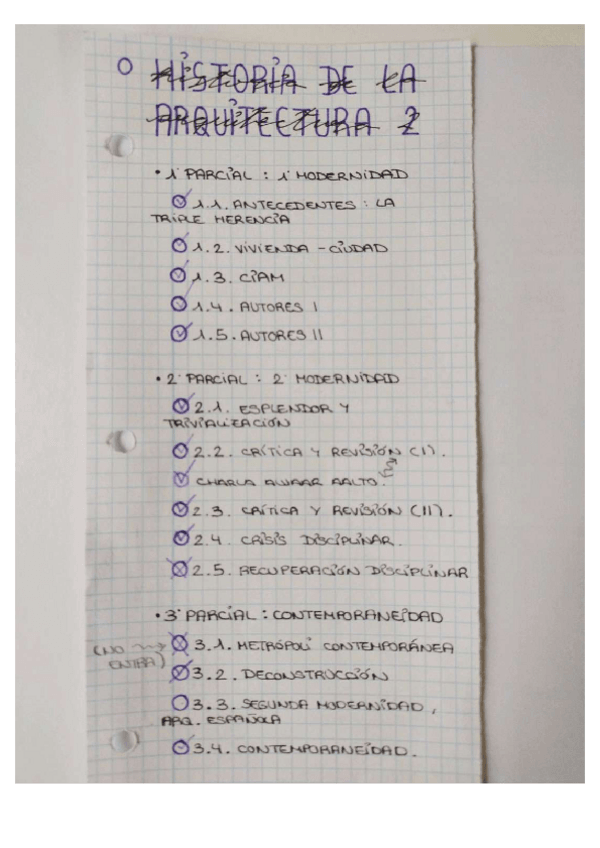 HISTORIA DE LA
ARQUITECTURA 2
· 1º PARCIAL : 1ª MODERNIDAD
1.1. ANTECEDENTES : LA
TRIPLE HERENCIA
1.2. VIVIENDA - CIUDAD
1.3. CIAM
1.4. AUTORES I
1.5. AUTORES II
· 2º PARCIAL : 2ª MODERNIDAD
2.1. ESPLENDOR Y
TRIVIALIZACIÓN
2.2. CRÍTICA Y REVISIÓN (I).
CHARLA ALVAAR AALTO.
2.3. CRÍTICA Y REVISIÓN (II).
2.4. CRISIS DISCIPLINAR.
2.5. RECUPERACIÓN DISCIPLINAR
· 3º PARCIAL : CONTEMPORANEIDAD
(NO ENTRA) 3.1. METRÓPOLI CONTEMPORÁNEA
3.2. DECONSTRUCCIÓN
3.3. SEGUNDA MODERNIDAD,
ARQ. ESPAÑOLA
3.4. CONTEMPORANEIDAD.